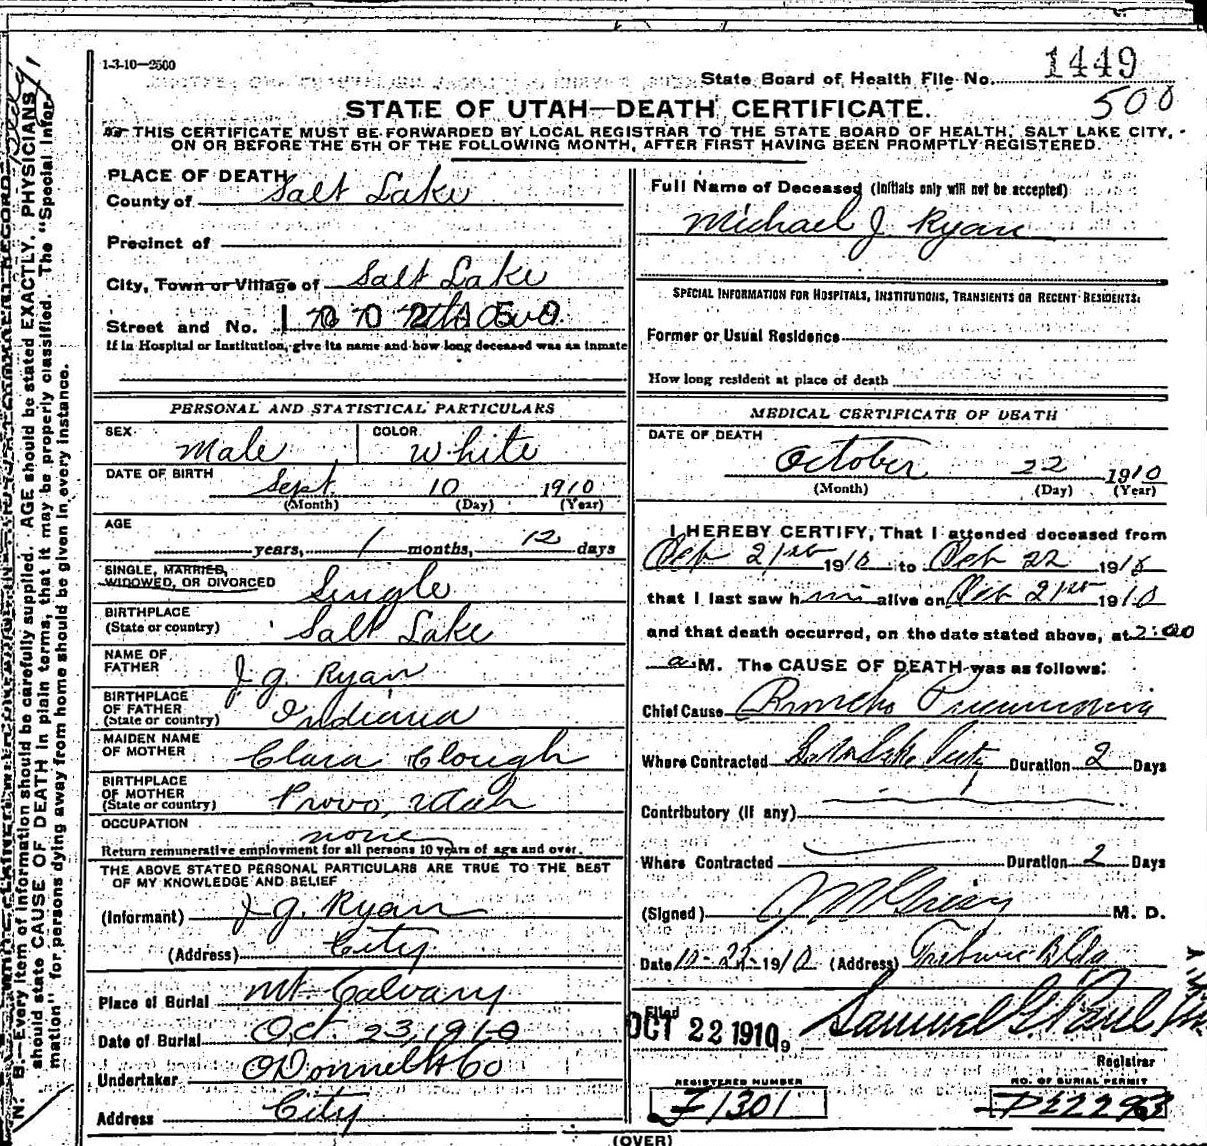 1-3-10—2500
State Board of Health File No. 1449
500
STATE OF UTAH—DEATH CERTIFICATE.
THIS CERTIFICATE MUST BE FORWARDED BY LOCAL REGISTRAR TO THE STATE BOARD OF HEALTH, SALT LAKE CITY,
ON OR BEFORE THE 5TH OF THE FOLLOWING MONTH, AFTER FIRST HAVING BEEN PROMPTLY REGISTERED.
PLACE OF DEATH
County of Salt Lake
Precinct of
City, Town or Village of Salt Lake
Street and No.
If in Hospital or Institution, give its name and how long deceased was an inmate
PERSONAL AND STATISTICAL PARTICULARS
SEX Male COLOR White
DATE OF BIRTH Sept. 10 1910
(Month) (Day) (Year)
AGE
years, 1 months, 12 days
SINGLE, MARRIED,
WIDOWED, OR DIVORCED Single
BIRTHPLACE
(State or country) Salt Lake
NAME OF
FATHER J. G. Ryan
BIRTHPLACE
OF FATHER
(State or country) Indiana
MAIDEN NAME
OF MOTHER Clara Clough
BIRTHPLACE
OF MOTHER
(State or country) Provo, Utah
OCCUPATION none
Return remunerative employment for all persons 10 years of age and over.
THE ABOVE STATED PERSONAL PARTICULARS ARE TRUE TO THE BEST
OF MY KNOWLEDGE AND BELIEF
(Informant) J. G. Ryan
(Address) City
Place of Burial Mt Calvary
Date of Burial Oct. 23, 1910
Undertaker O'Donnell & Co
Address City
Full Name of Deceased (Initials only will not be accepted)
Michael J Ryan
SPECIAL INFORMATION FOR HOSPITALS, INSTITUTIONS, TRANSIENTS OR RECENT RESIDENTS.
Former or Usual Residence
How long resident at place of death
MEDICAL CERTIFICATE OF DEATH
DATE OF DEATH
October 22 1910
(Month) (Day) (Year)
I HEREBY CERTIFY, That I attended deceased from
Oct 21st 1910 to Oct 22 1910
that I last saw him alive on Oct 21st 1910
and that death occurred, on the date stated above, at 2:00
a. M. The CAUSE OF DEATH was as follows:
Chief Cause Broncho Pneumonia
Where Contracted Salt Lake City Duration 2 Days
Contributory (if any)
Where Contracted Duration 2 Days
(Signed) M. D.
Date 1910 (Address) Tribune Bldg
Filed OCT 22 1910 9 Samuel G. Paul
Registrar
REGISTERED NUMBER NO. OF BURIAL PERMIT
F1301
(OVER)
N. B.—Every item of information should be carefully supplied. AGE should be stated EXACTLY. PHYSICIANS
should state CAUSE OF DEATH in plain terms, that it may be properly classified. The "Special Infor-
mation" for persons dying away from home should be given in every instance.